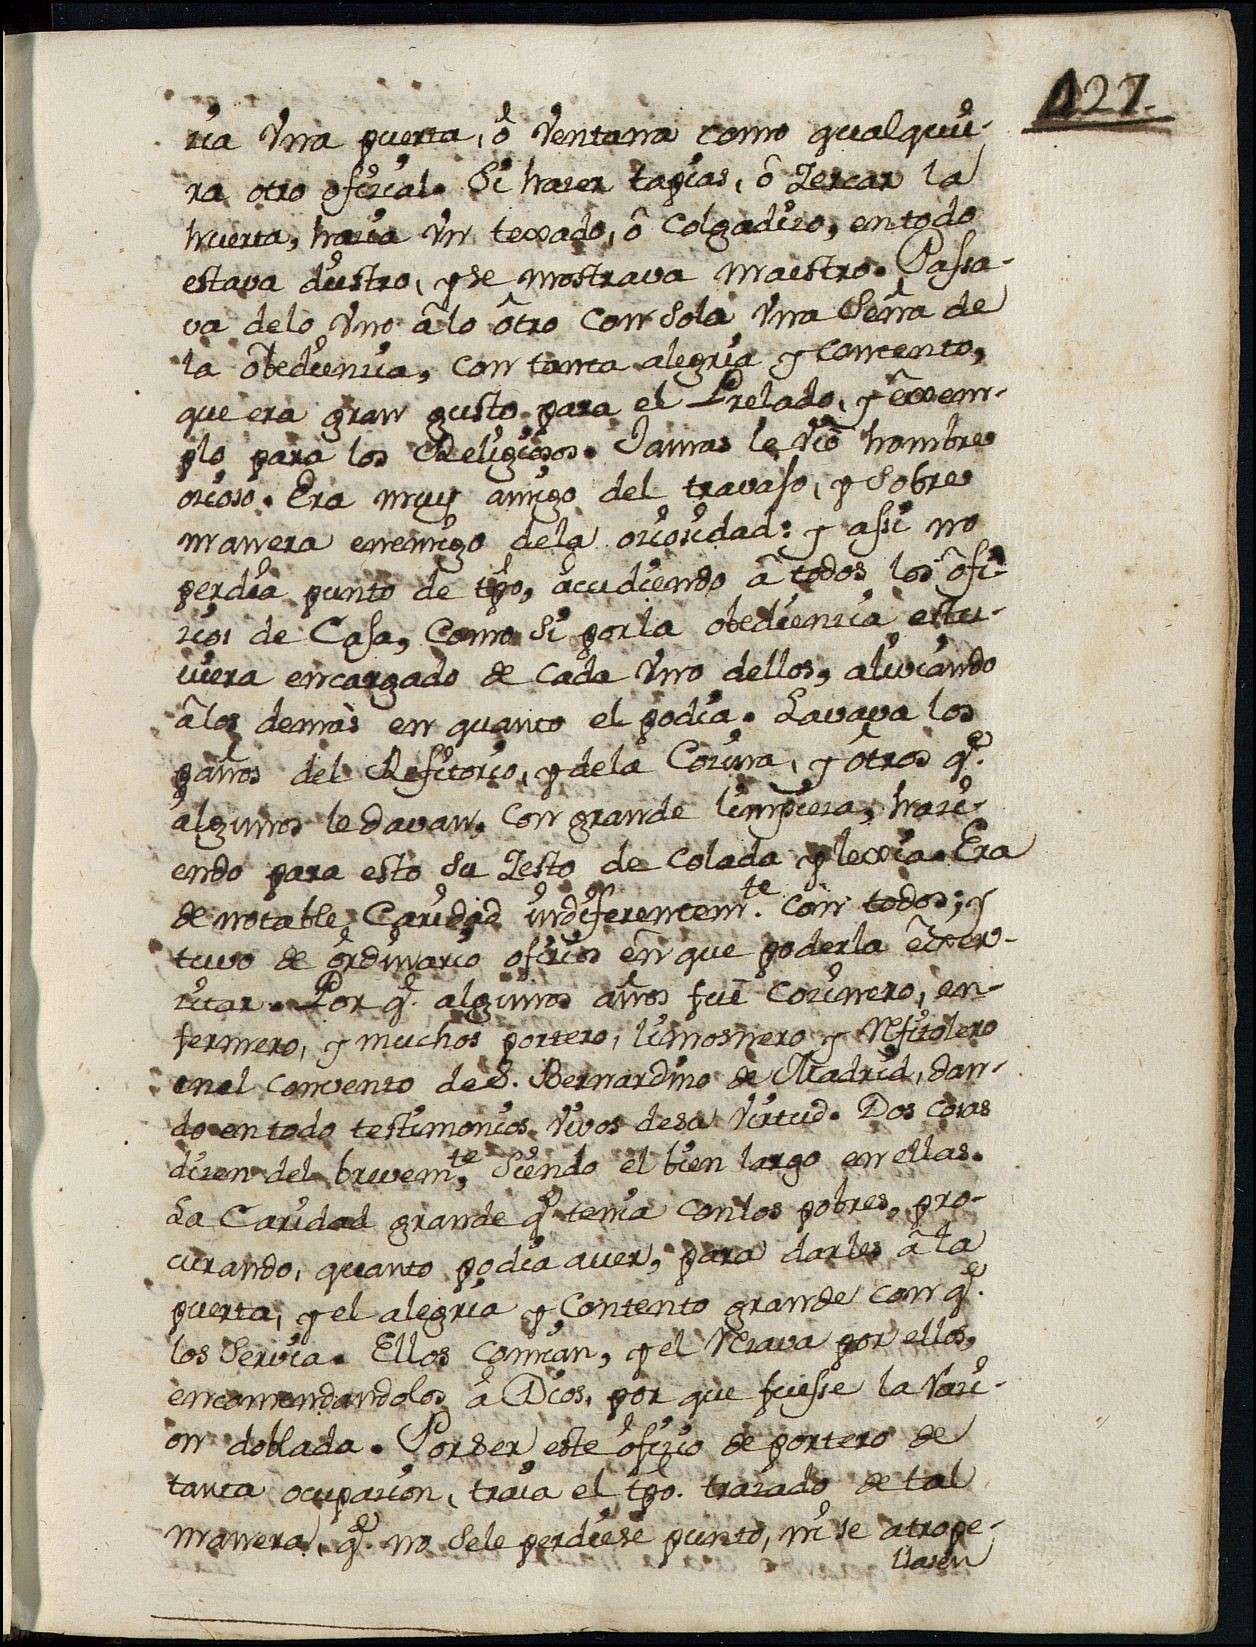 127.
ria Vna puerta, ô Ventana como qualquie-
ra otro oficial. Si hazer tapias, ô Zercar la
huerta, hazia Vn texado, ô Colgadizo, en todo
estava diestro, y se mostrava maestro. Passa-
va delo Vno âlo ôtro con Sola Vna Seña de
la ôbediencia, con tanta alegria y contento,
que era gran gusto para el Prelado, y êxem-
plo para los Religiosos. Jamas le viò hombre
ocioso. Era muy amigo del travajo, y Sobre
manera enemigo dela ociosidad: y assi no
perdia punto de tpo, acudiendo â todos los ôfi-
cios de Casa, Como Si por la obediencia estu-
viera encargado de cada Vno dellos, aliviando
âlos demàs en quanto el podia. Lavava los
paños del Refitorio, y dela Cozina, y ôtros q.e
algunos le davan, con grande limpieza, hazi-
endo para esto su Zesto de Colada y lexia. Era
de notable Caridad indiferentem.te con todos; y
tuvo de ôrdinario oficios en que poderla êxer-
zitar. Por q. algunos años fue Cozinero, en-
fermero, y muchos portero, limosnero y Refitolero
enel convento de S. Bernardino de Madrid, dan-
do en todo testimonios vivos desa Virtud. Dos cosas
dizen del brevem.te, Siendo el bien largo en ellas.
La Caridad grande q.e tenia con los pobres, pro-
curando, quanto podia auer, para darles â la
puerta, y el alegria y Contento grande con q.e
los Servia. Ellos Comian, y el Rezava por ellos,
encomendandolos â Dios, por que fuesse la Razi-
on doblada. Por Ser este ôficio de portero de
tanta ocupacion, traia el tpo. trazado de tal
manera, q.e no Sele perdiese punto, ni se atrope-
llasen